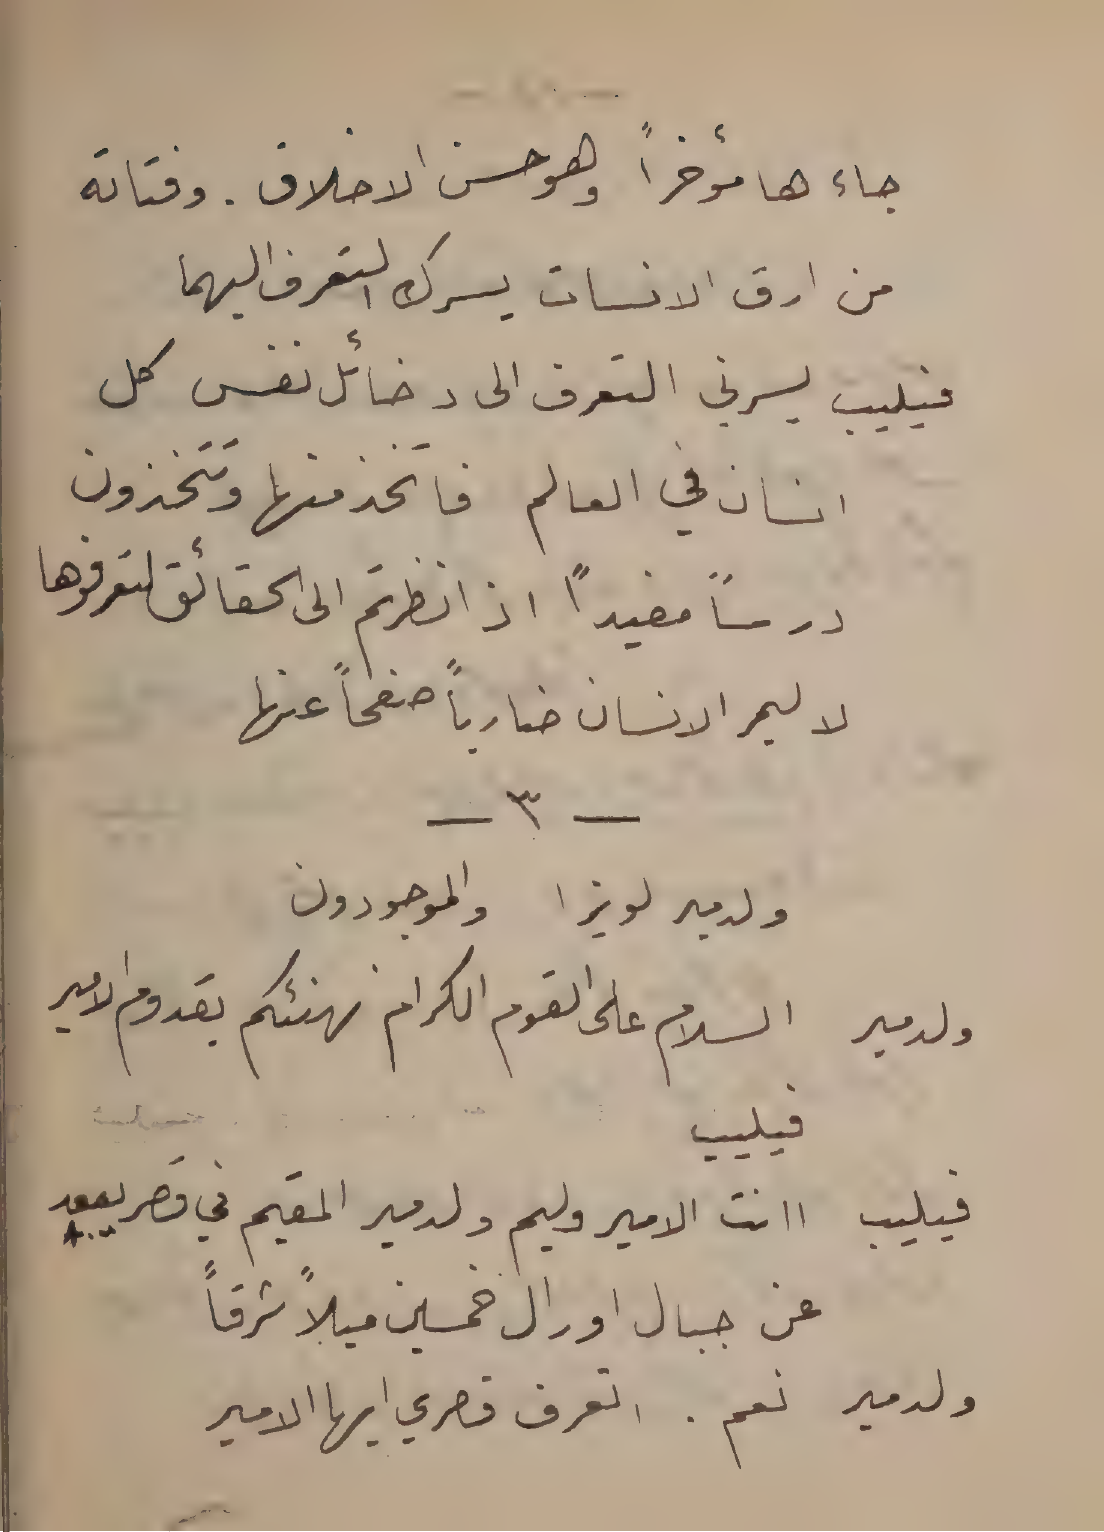 جاء ها مؤخراً وهو حسن الاخلاق . وفتاته
من ارق الانسات يسرك التعرف اليهما
فيليب يسرني التعرف الى دخائل نفس كل
انسان في العالم فاتخذ منها وتتخذون
درساً مفيداً اذا نظرتم الى الحقائق لتعرفوها
لا ليمر الانسان ضارباً صفحاً عنها
— ٣ —
ولدمير لويزا والموجودون
ولدمير السلام على القوم الكرام نهنئكم بقدوم الامير
فيليب
فيليب اانت الامير وليم ولدمير المقيم في قصر يبعد
عن جبال اورال خمسين ميلاً شرقاً
ولدمير نعم . اتعرف قصري ايها الامير